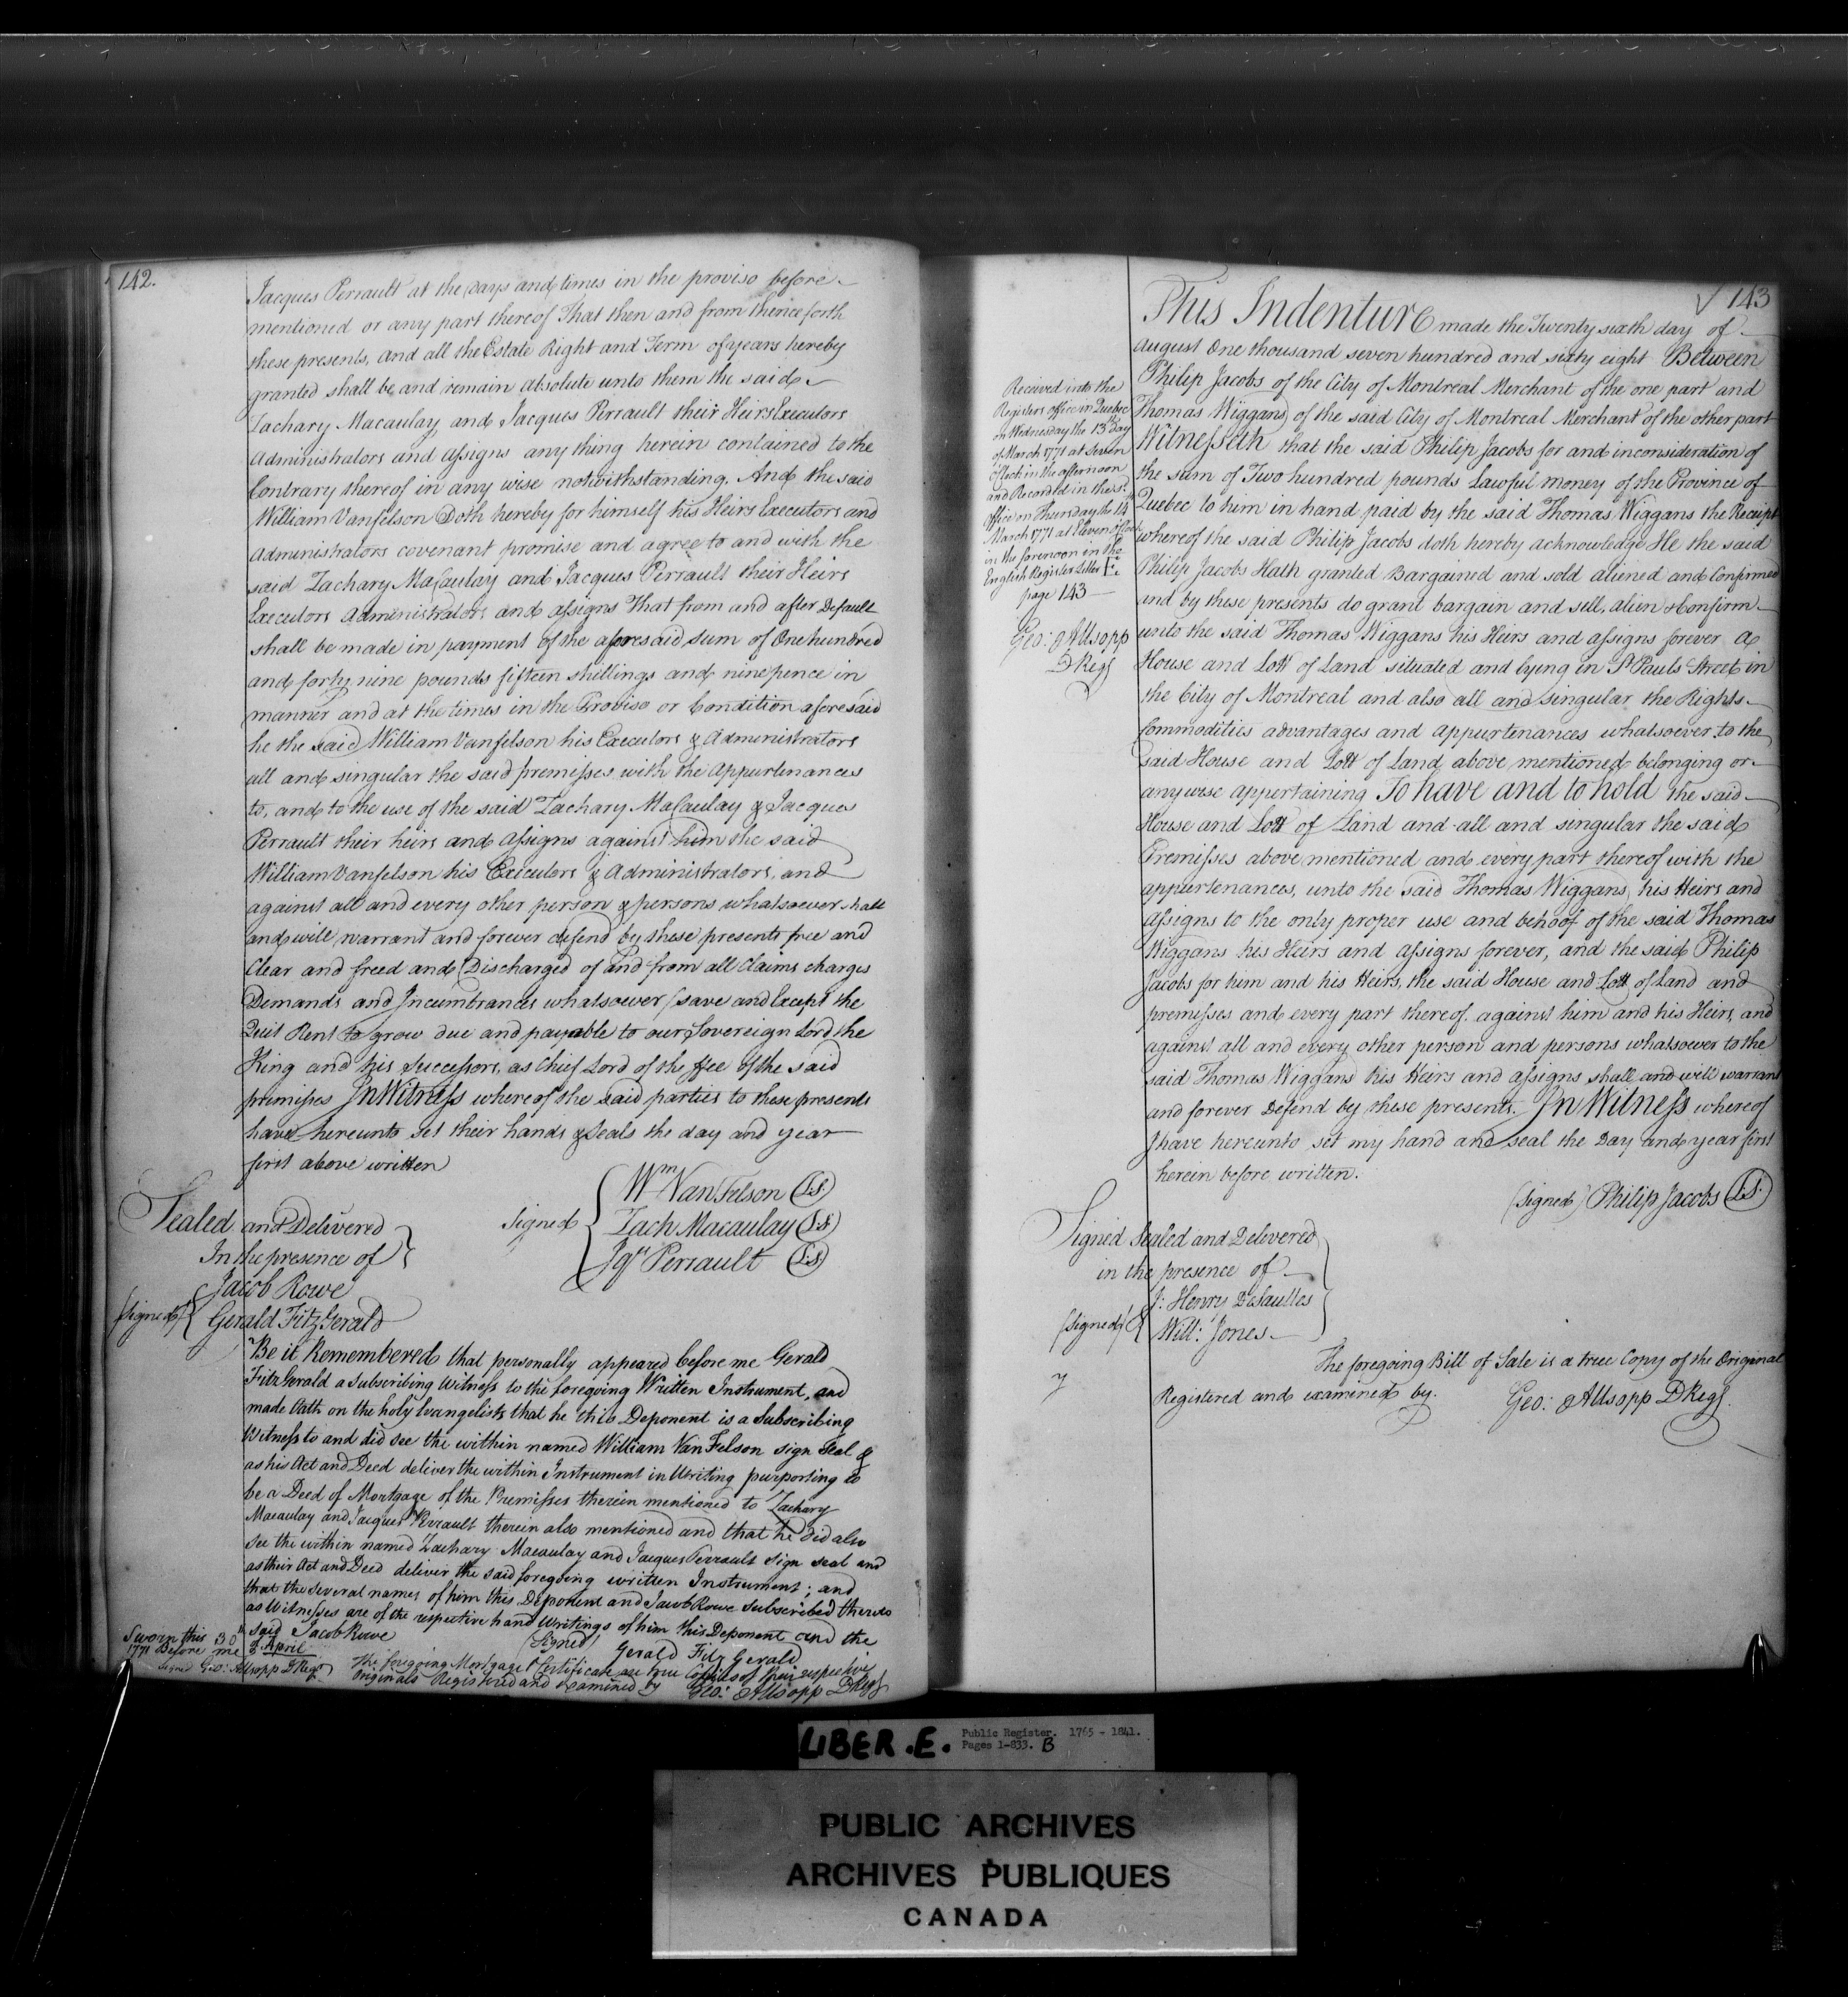 142.
Jacques Perrault at the days and times in the proviso before
mentioned or any part thereof That then and from thence forth
these presents, and all the Estate Right and Term of years hereby
granted shall be and remain absolute unto them the said
Zachary Macaulay and Jacques Perrault their Heirs Executors
Administrators and assigns any thing herein contained to the
Contrary thereof in any wise notwithstanding. And the said
William Vanfelson Doth hereby for himself his Heirs Executors and
Administrators covenant promise and agree to and with the
said Zachary Macaulay and Jacques Perrault their Heirs
Executors Administrators and assigns That from and after Default
shall be made in payment of the aforesaid sum of One hundred
and forty nine pounds fifteen shillings and ninepence in
manner and at the times in the Proviso or Condition aforesaid
he the said William Vanfelson his Executors & Administrators
all and singular the said premisses with the Appurtenances
to, and to the use of the said Zachary Macaulay & Jacques
Perrault their heirs and Assigns against him the said
William Vanfelson his Executors & Administrators, and
against all and every other person & persons whatsoever shall
and will warrant and forever defend by these presents free and
Clear and freed and Discharged of and from all Claims charges
Demands and Incumbrances whatsoever (save and Except the
Quit Rent to grow due and payable to our Sovereign Lord the
King and his Successors, as Chief Lord of the ffee of the said
premisses In Witness whereof the said parties to these presents
have hereunto set their hands & Seals the day and year
first above written
Sealed and Delivered
In the presence of
Jacob Rowe
(Signed) Gerald FitzGerald
Signed
Wm. VanFelson (L.S.)
Zach Macaulay (L.S.)
Jqs Perrault (L.S.)
Be it Remembered that personally appeared before me Gerald
FitzGerald a Subscribing Witness to the foregoing Written Instrument, and
made Oath on the holy Evangelists that he this Deponent is a Subscribing
Witness to and did see the within named William Van Felson sign Seal &
as his Act and Deed deliver the within Instrument in Writing purporting to
be a Deed of Mortgage of the Premisses therein mentioned to Zachary
Macaulay and Jacques Perrault therein also mentioned and that he did also
see the within named Zachary Macaulay and Jacques Perrault sign seal and
as their Act and Deed deliver the said foregoing written Instrument; and
that the several names of him this Deponent and Jacob Rowe subscribed thereto
as Witnesses are of the respective hand Writings of him this Deponent and the
said Jacob Rowe
(Signed) Gerald Fitz Gerald
Sworn this 30th of April
1771 Before me
Signed Geo: Allsopp DRegr
The foregoing Mortgage & Certificate are true Copies of their respective
Originals Registered and examined by Geo: Allsopp DRegr
143
Received into the
Registers office in Quebec
on Wednesday the 13th day
of March 1771 at Seven
oClock in the afternoon
and Recorded in the sd.
Office on Thursday the 14th
March 1771 at Eleven oClock
in the forenoon in the
English Register Letter E.
page 143
Geo: Allsopp
DRegr
This Indenture made the Twenty sixth day of
August One thousand seven hundred and sixty eight Between
Philip Jacobs of the City of Montreal Merchant of the one part and
Thomas Wiggans of the said City of Montreal Merchant of the other part
Witnesseth that the said Philip Jacobs for and in consideration of
the sum of Two hundred pounds Lawful money of the Province of
Quebec to him in hand paid by the said Thomas Wiggans the Receipt
whereof the said Philip Jacobs doth hereby acknowledge He the said
Philip Jacobs Hath granted Bargained and sold aliened and Confirmed
and by these presents do grant bargain and sell, alien & Confirm
unto the said Thomas Wiggans his Heirs and assigns forever a
House and Lott of Land situated and lying in St. Pauls Street in
the City of Montreal and also all and singular the Rights
Commodities advantages and appurtenances whatsoever to the
said House and Lott of Land above mentioned belonging or
any wise appertaining To have and to hold the said
House and Lott of Land and all and singular the said
Premisses above mentioned and every part thereof with the
appurtenances, unto the said Thomas Wiggans, his Heirs and
Assigns to the only proper use and behoof of the said Thomas
Wiggans his Heirs and Assigns forever, and the said Philip
Jacobs for him and his Heirs, the said House and Lott of Land and
premisses and every part thereof. against him and his Heirs, and
against all and every other person and persons whatsoever to the
said Thomas Wiggans his Heirs and assigns shall and will warrant
and forever Defend by these presents. In Witness whereof
I have hereunto set my hand and seal the Day and year first
herein before written.
(Signed) Philip Jacobs (L.S.)
Signed Sealed and Delivered
in the presence of
J: Henry DeSaulles
(Signed) Will: Jones
The foregoing Bill of Sale is a true Copy of the Original
Registered and examined by. Geo: Allsopp DRegr.
LIBER.E. Public Register. 1765 - 1841.
Pages 1-833. B
PUBLIC ARCHIVES
ARCHIVES PUBLIQUES
CANADA